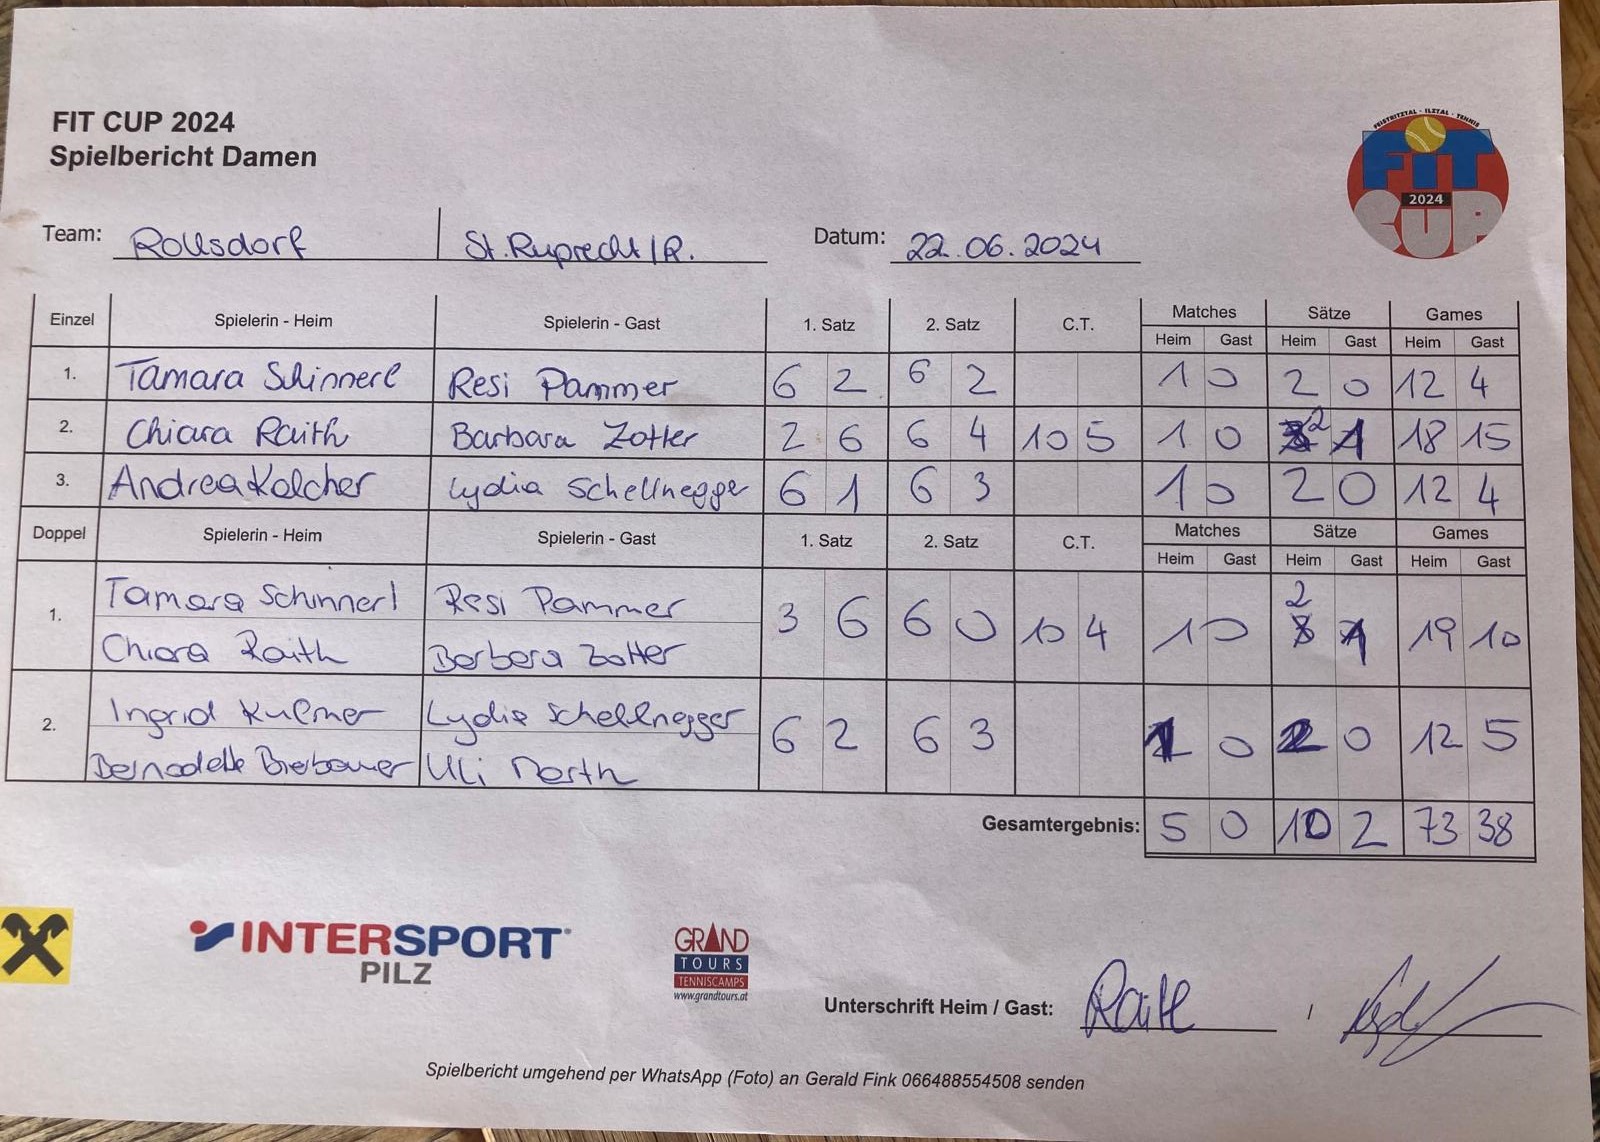 FIT CUP 2024
Spielbericht Damen
FEISTRITZTAL - ILZTAL - TENNIS
FiT
2024
CUP
Team: Rollsdorf St. Ruprecht/R. Datum: 22.06.2024
Einzel Spielerin - Heim Spielerin - Gast 1. Satz 2. Satz C.T. Matches Sätze Games
Heim Gast Heim Gast Heim Gast
1. Tamara Schinnerl Resi Pammer 6 2 6 2 1 0 2 0 12 4
2. Chiara Raith Barbara Zotter 2 6 6 4 10 5 1 0 2 1 18 15
3. Andrea Kalcher Lydia Schellnegger 6 1 6 3 1 0 2 0 12 4
Doppel Spielerin - Heim Spielerin - Gast 1. Satz 2. Satz C.T. Matches Sätze Games
Heim Gast Heim Gast Heim Gast
Tamara Schinnerl Resi Pammer
1. 3 6 6 0 10 4 1 0 2 1 19 10
Chiara Raith Barbara Zotter
Ingrid Kulmer Lydia Schellnegger
2. 6 2 6 3 1 0 2 0 12 5
Bernadette Bierbauer Uli North
Gesamtergebnis: 5 0 10 2 73 38
INTERSPORT
PILZ
GRAND
TOURS
TENNISCAMPS
www.grandtours.at
Unterschrift Heim / Gast: Raith /
Spielbericht umgehend per WhatsApp (Foto) an Gerald Fink 066488554508 senden